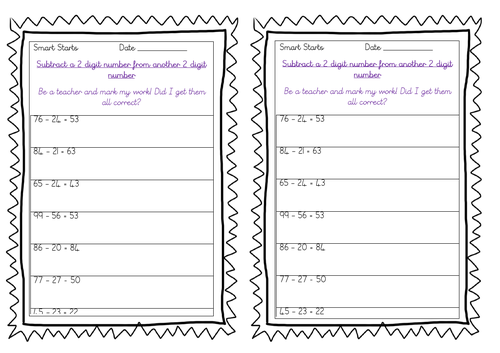 Smart Starts Date ____________
Subtract a 2 digit number from another 2 digit
number
Be a teacher and mark my work! Did I get them
all correct?
76 – 24 = 53
84 – 21 = 63
65 – 24 = 43
99 – 56 = 53
86 – 20 = 84
77 – 27 - 50
45 – 23 = 22
Smart Starts Date ____________
Subtract a 2 digit number from another 2 digit
number
Be a teacher and mark my work! Did I get them
all correct?
76 – 24 = 53
84 – 21 = 63
65 – 24 = 43
99 – 56 = 53
86 – 20 = 84
77 – 27 - 50
45 – 23 = 22